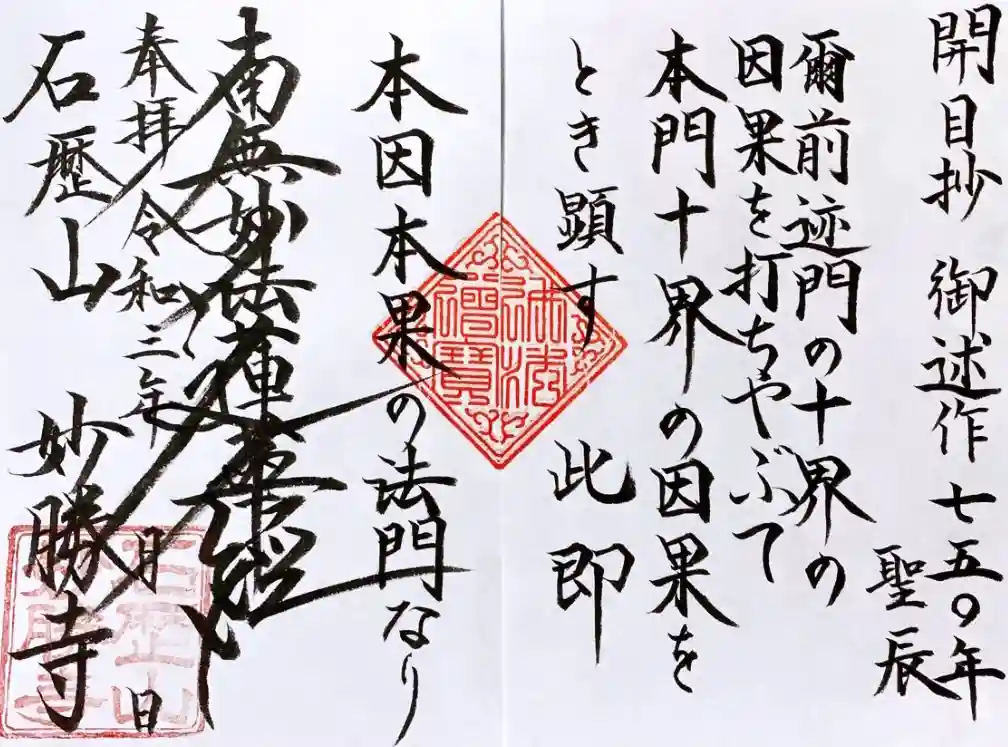 開目抄 御述作七五〇年
聖辰
爾前迹門の十界の
因果を打ちやぶて
本門十界の因果を
とき顕す 此即
本因本果の法門なり
南無妙法蓮華経
奉拝 令和三年 月 日
石瀝山 妙勝寺
弘法
禮寶
石瀝山
妙勝寺